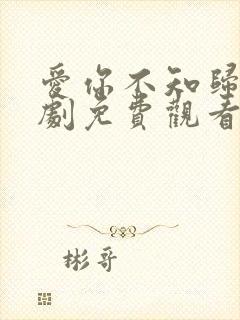 愛你不知歸
劇免費觀看
彬哥